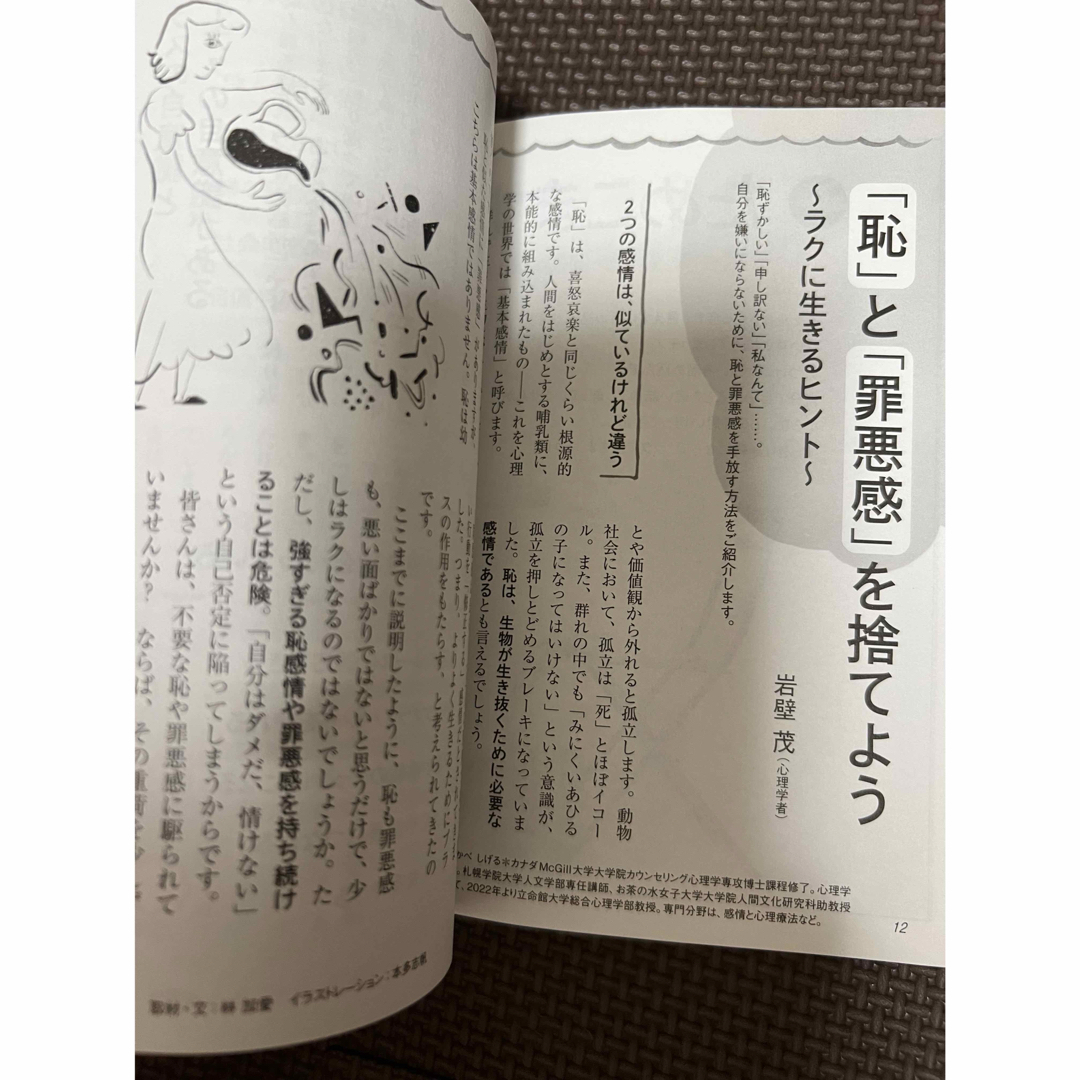 「恥」と「罪悪感」を捨てよう
〜ラクに生きるヒント〜
岩壁 茂（心理学者）
「恥ずかしい」「申し訳ない」「私なんて」……。
自分を嫌いにならないために、恥と罪悪感を手放す方法をご紹介します。
2つの感情は、似ているけれど違う
「恥」は、喜怒哀楽と同じくらい根源的
な感情です。人間をはじめとする哺乳類に、
本能的に組み込まれたもの――これを心理
学の世界では「基本感情」と呼びます。
とや価値観から外れると孤立します。動物
社会において、孤立は「死」とほぼイコー
ル。また、群れの中でも「みにくいあひる
の子になってはいけない」という意識が、
孤立を押しとどめるブレーキになっていま
した。恥は、生物が生き抜くために必要な
感情であるとも言えるでしょう。
かべ しげる＊カナダMcGill大学大学院カウンセリング心理学専攻博士課程修了。心理学
。札幌学院大学人文学部専任講師、お茶の水女子大学大学院人間文化研究科助教授
て、2022年より立命館大学総合心理学部教授。専門分野は、感情と心理療法など。
12
こちらは基本感情ではありません。恥は幼
した。つまり、よりよく生きるためにプラ
スの作用をもたらす、と考えられてきたの
です。
ここまでに説明したように、恥も罪悪感
も、悪い面ばかりではないと思うだけで、少
しはラクになるのではないでしょうか。た
だし、強すぎる恥感情や罪悪感を持ち続け
ることは危険。「自分はダメだ、情けない」
という自己否定に陥ってしまうからです。
皆さんは、不要な恥や罪悪感に駆られて
いませんか？ ならば、その重荷を
イラストレーション：本多志帆